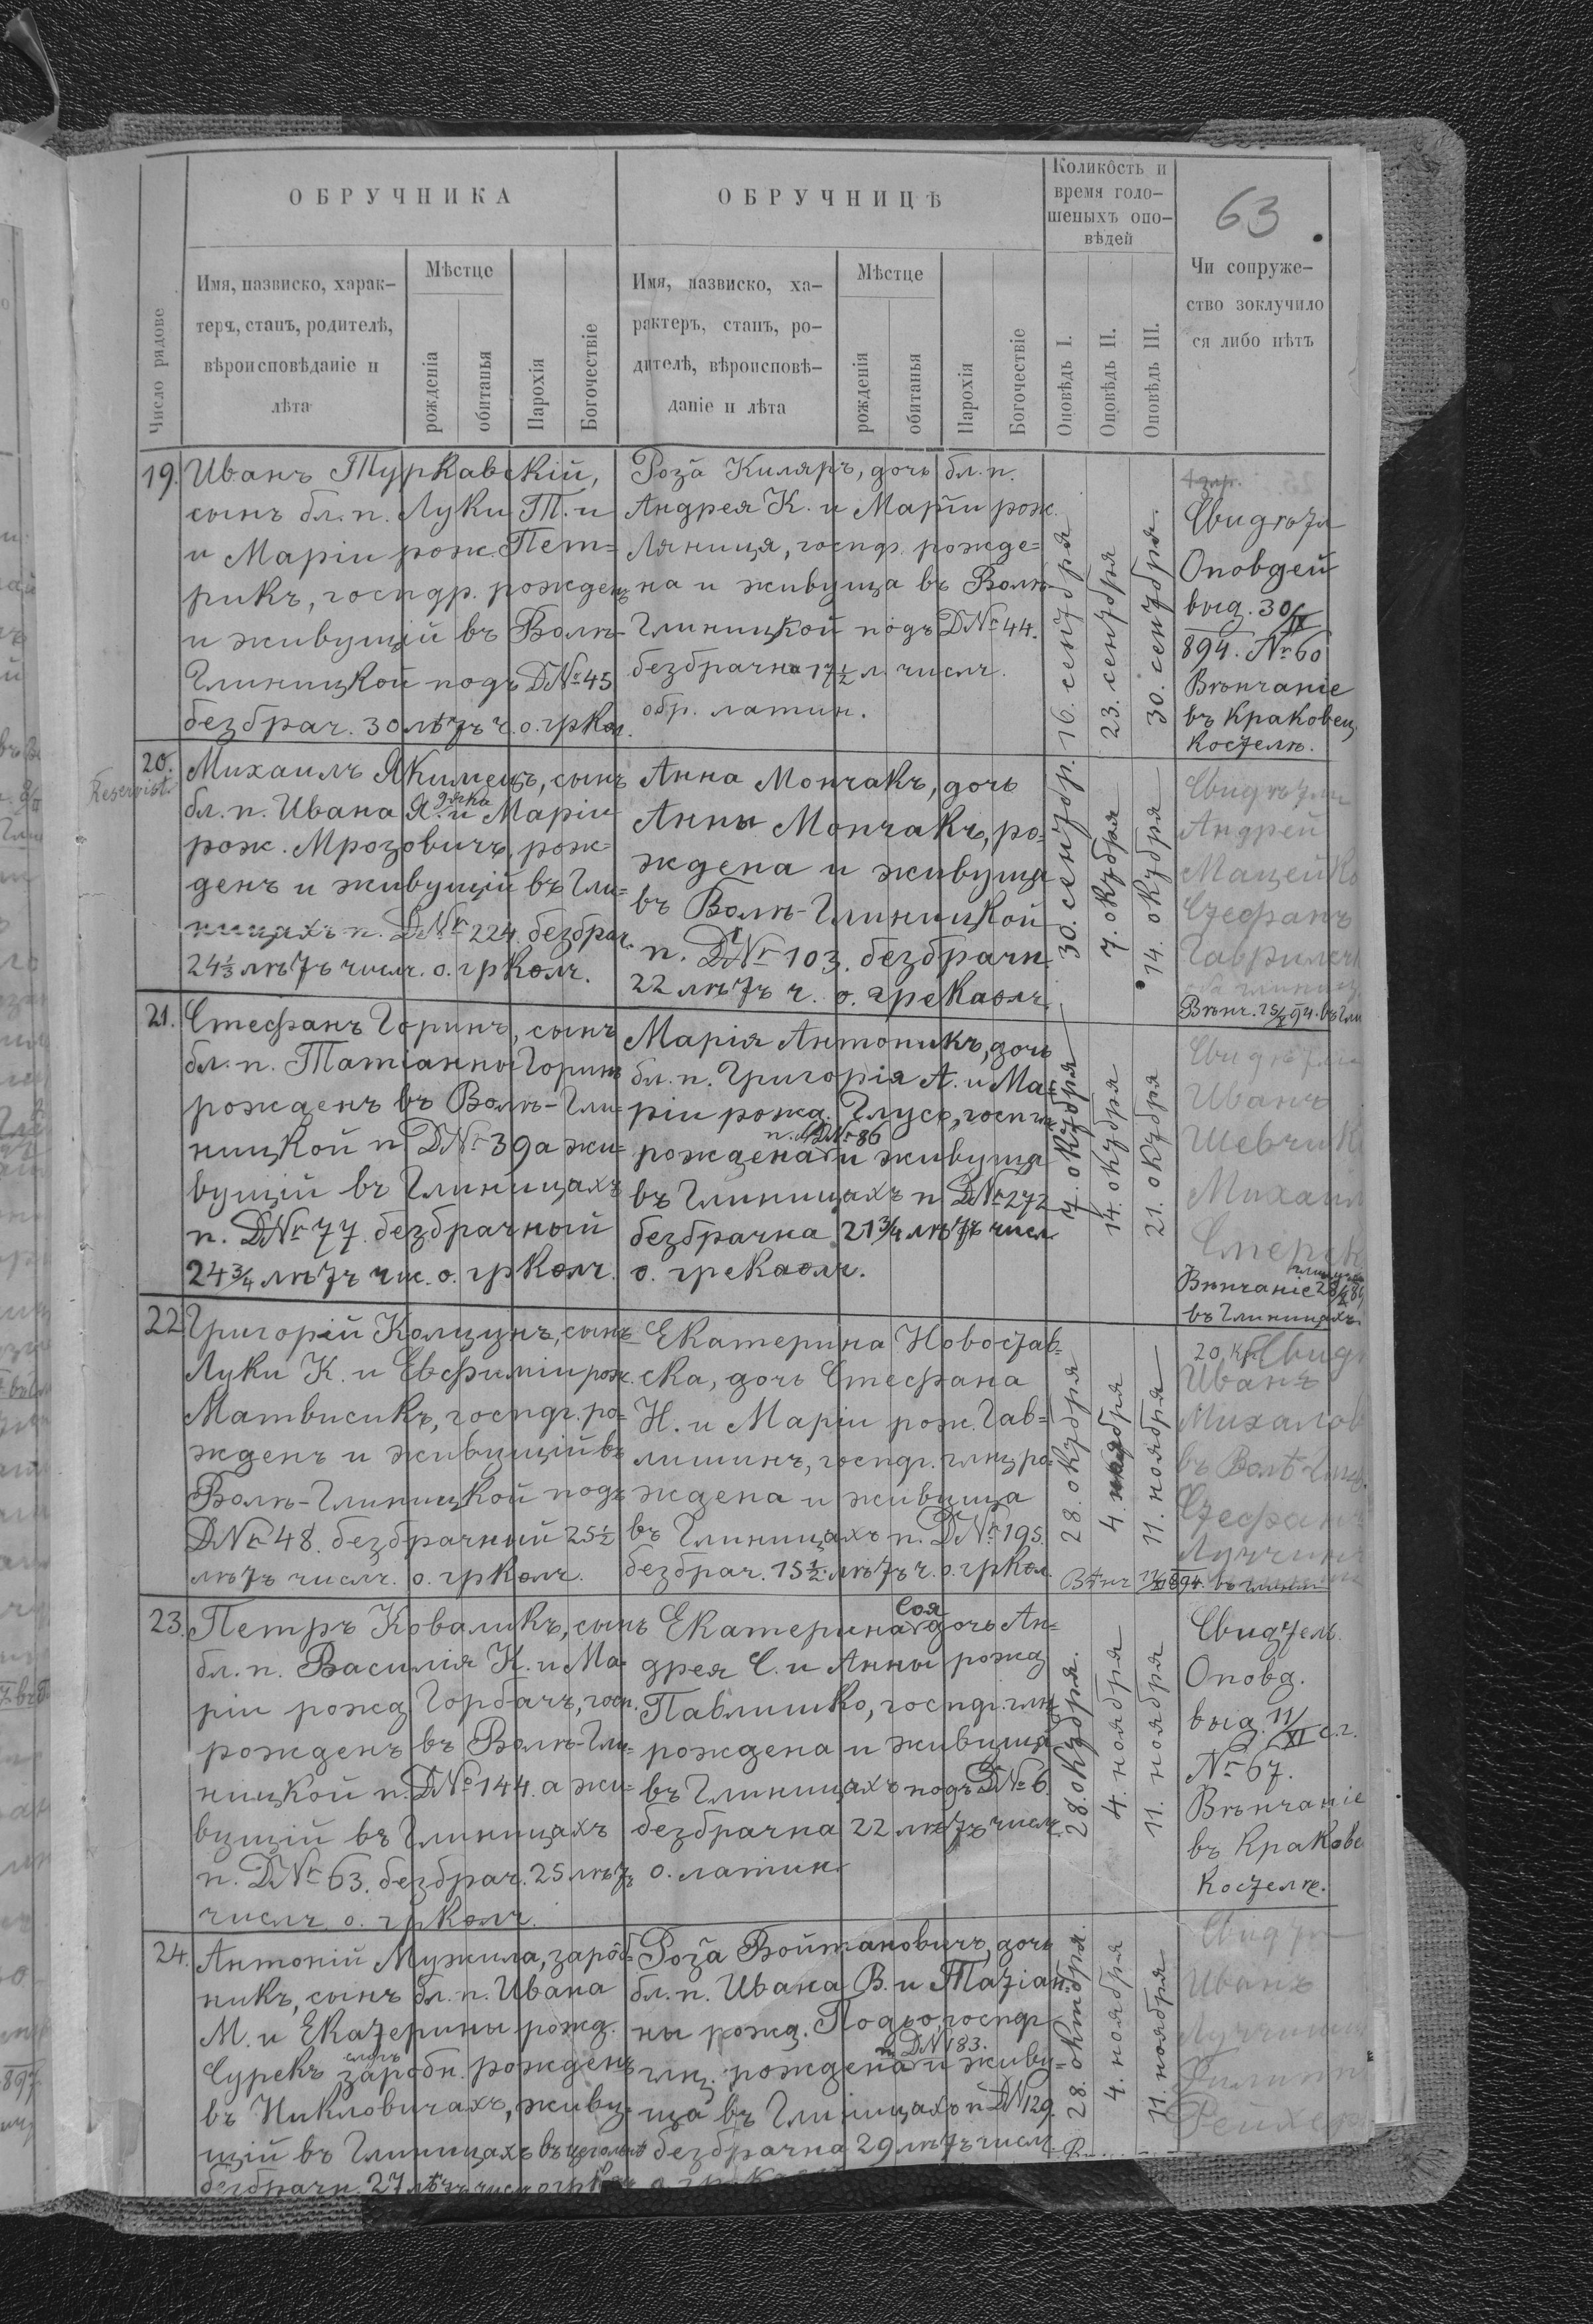 63
ОБРУЧНИКА
ОБРУЧНИЦѢ
Коликôсть и
время голо-
шеныхъ опо-
вѣдей
Чи сопруже-
ство зоключило
ся либо нѣтъ
Число рядове
Имя, назвиско, харак-
теръ, станъ, родителѣ,
вѣроисповѣданіе и
лѣта
Мѣстце
рожденія
обитанья
Парохія
Богочествіе
Имя, назвиско, ха-
рактеръ, станъ, ро-
дителѣ, вѣроисповѣ-
даніе и лѣта
Мѣстце
рожденія
обитанья
Парохія
Богочествіе
Оповѣдь I.
Оповѣдь II.
Оповѣдь III.
19.
Иванъ Туркавскій,
сынъ бл. п. Луки Т. и
и Маріи рож. Пет=
рикъ, госпдр. рожден
и живущій въ Волѣ-
Глиницкой подъ DNr 45
безбрач. 30 лѣтъ ч. о. грКол.
Роза Киляръ, дочь бл. п.
Андрея К. и Маріи рож.
Ляниця, госпдр. рожде=
на и живуща въ Волѣ-
Глиницкой подъ DNr 44.
безбрачна 17 1/2 л. числч.
обр. латин.
16. сентября
23. сентября
30. сентября.
Оповдей
выд. 30/IX
894. Nr 60
Вѣнчаніе
въ Краковец
костелѣ.
20.
Reservist
Михаилъ Якимецъ, сынъ
бл. п. Ивана Я. дяка и Маріи
рож. Мрозовичъ, рож=
денъ и живущій въ Гли=
ницахъ п. DNr 224. безбрач.
24 1/3 лѣтъ числч. о. грКолч.
Анна Мончакъ, дочь
Анны Мончакъ, ро=
ждена и живуща
въ Волѣ-Глиницкой
п. DNr 103. безбрачн.
22 лѣтъ ч. о. грекаолч.
30. сентябр.
7. октября
14. октября
Андрей
Мацейко
Стефанъ
Вѣнч. 25/X 94. въ Гли
21.
Стефанъ Горинъ, сынъ
бл. п. Татіанны Горинъ
рожденъ въ Волѣ-Гли=
ницкой п. DNr 39 а жи=
вущій въ Глиницахъ
п. DNr 77. безбрачный
24 3/4 лѣтъ чис. о. грКолч.
Марія Антоникъ, дочь
бл. п. Григорія А. и Ма=
ріи рожд. Глусо, госп
п. DNr 86
рождена и живуща
въ Глиницахъ п DNr 272
безбрачна 21 3/4 лѣтъ числ
о. грекаолч.
7. октября
14. октября
21. октября
Иванъ
Шевчик
Михаил
Вѣнчаніе
въ Глиницахъ
22
Григорій Колцунъ, сынъ
Луки К. и Евфиміи рож.
Матвисикъ, госпдг. ро=
жденъ и живущій въ
Волѣ-Глиницкой подъ
DNr 48. безбрачный 25 1/2
лѣтъ числч. о. грКолч.
Екатерина Новостав=
ска, дочь Стефана
Н. и Маріи рож. Гав=
лишинъ, госпдг. глнц ро=
ждена и живуща
въ Глиницахъ п. DNr 195.
безбрач. 15 1/2 лѣтъ ч. о. грКол.
28. октября
4. ноября
11. ноября
20. кр.
Иванъ
Михалов
въ Волѣ Глиц.
Стефанъ
894. въ Глиниц
23.
Петръ Коваликъ, сынъ
бл. п. Василія К. и Ма=
ріи рожд Горбачъ, госп.
рожденъ въ Волѣ-Гли=
ницкой п. DNr 144. а жи=
вущій въ Глиницахъ
п. DNr 63. безбрач. 25 лѣтъ
числч. о. грКолч.
Екатерина Соя дочь Ан=
дрея С. и Анны рожд
Павлишко, госпдг. глн
рождена и живуща
въ Глиницахъ подъ DNr 6.
безбрачна 22 лѣтъ числч.
о. латин.
28. октября.
4. ноября
11. ноября
Свидѣтель.
Оповд.
выд. 11/XI с. г.
Nr 67.
Вѣнчаніе
въ Краковe
костелѣ.
24.
Антоній Мужила, зарôб
никъ, сынъ бл. п. Ивана
М. и Екатерины рожд.
Сурекъ заробн. рожденъ
въ Никловичахъ, живу=
щій въ Глиницахъ
безбрачн. 27 лѣтъ
Роза Войтановичъ, дочь
бл. п. Ивана В. и Татіан=
ны рожд. Подьо, госпдр
п DN 183.
глнц. рождена и живу=
ща въ Глиницахъ п DN 129.
безбрачна 29 лѣтъ числ
28. октября.
4. ноября
11. ноября
Иванъ